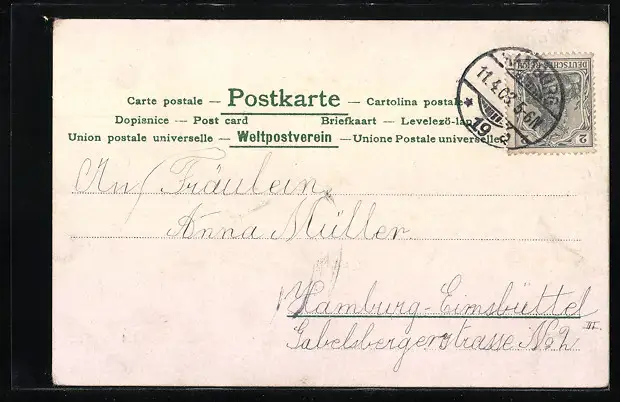 Carte postale — Postkarte — Cartolina postale
Dopisnice — Post card Briefkaart — Levelező-lap
Union postale universelle — Weltpostverein — Unione Postale universelle
HAMBURG
11.4.03.5-6N
* 19
DEUTSCHES REICH
2
An Fräulein
Anna Müller.
Hamburg-Eimsbüttel
Gabelsbergerstrasse No 2 III.